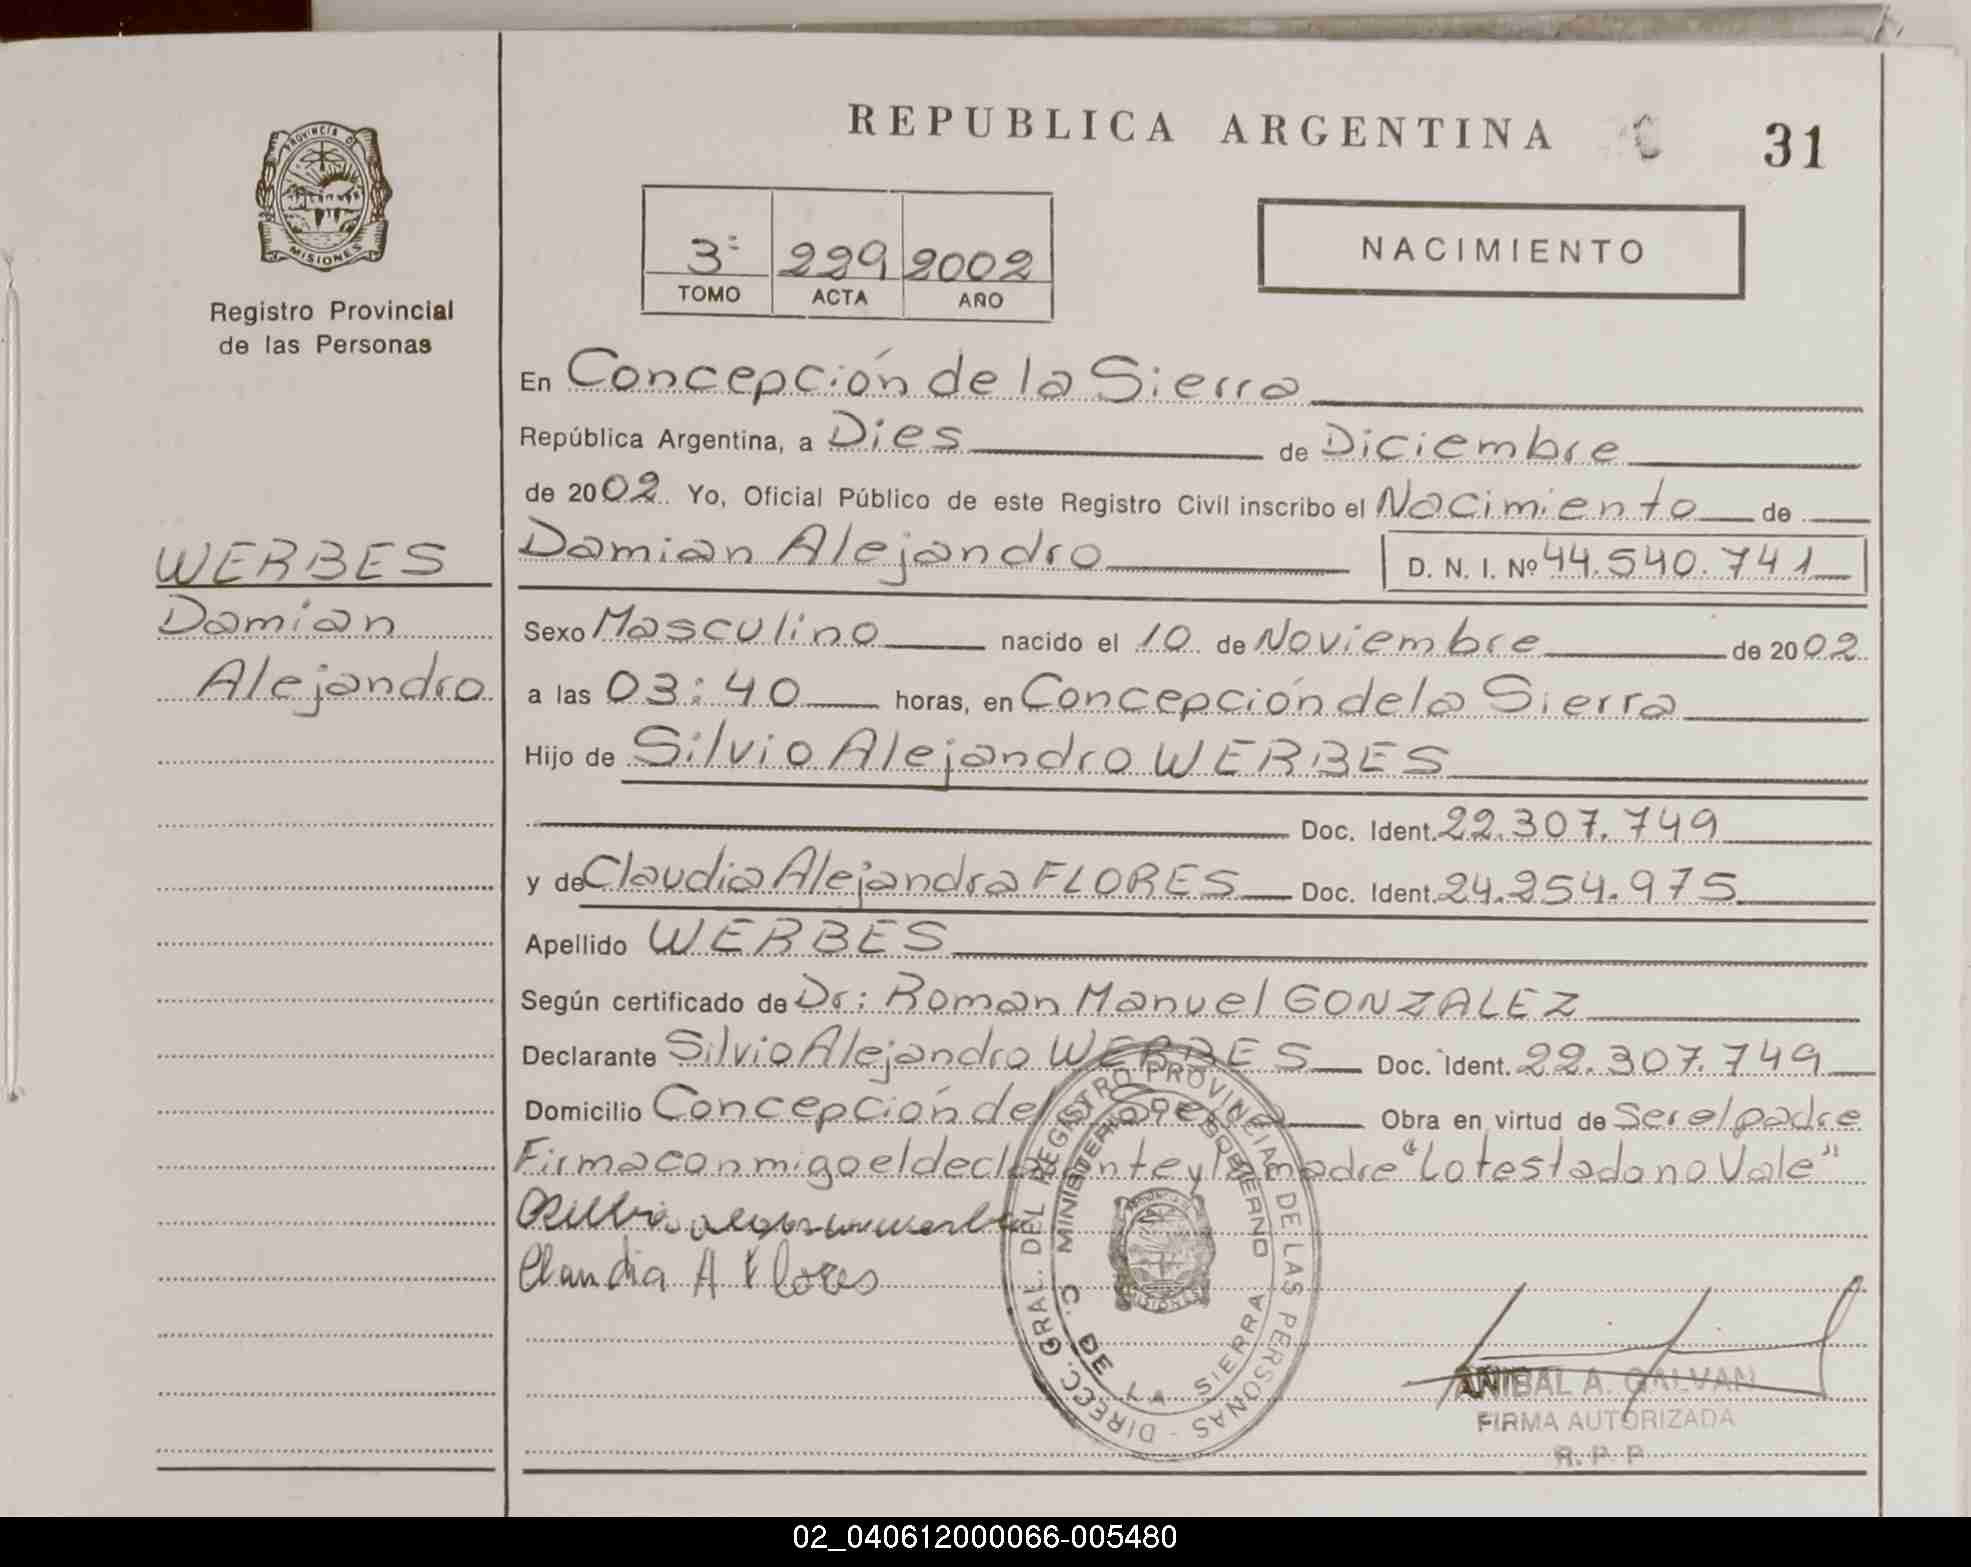 REPUBLICA ARGENTINA
31
PROVINCIA DE
MISIONES
Registro Provincial
de las Personas
3º 229 2002
TOMO ACTA AÑO
NACIMIENTO
En Concepción de la Sierra
República Argentina, a Dies de Diciembre
de 2002 Yo, Oficial Público de este Registro Civil inscribo el Nacimiento de
Damian Alejandro D. N. I. Nº 44.540.741
WERBES
Damian
Alejandro
Sexo Masculino nacido el 10 de Noviembre de 2002
a las 03:40 horas, en Concepción de la Sierra
Hijo de Silvio Alejandro WERBES
Doc. Ident. 22.307.749
y de Claudia Alejandra FLORES Doc. Ident. 24.254.975
Apellido WERBES
Según certificado de Dr: Roman Manuel GONZALEZ
Declarante Silvio Alejandro WERBES Doc. Ident. 22.307.749
Domicilio Concepción de la Sierra Obra en virtud de Ser el padre
Firma conmigo el declarante y la madre "Lo testado no Vale"
Claudia A Flores
DIRECC. GRAL. DEL REGISTRO PROVINCIAL DE LAS PERSONAS
MINISTERIO DE GOBIERNO
C. DE LA SIERRA
MISIONES
ANIBAL A. GALVAN
FIRMA AUTORIZADA
R. P. P.
02_040612000066-005480